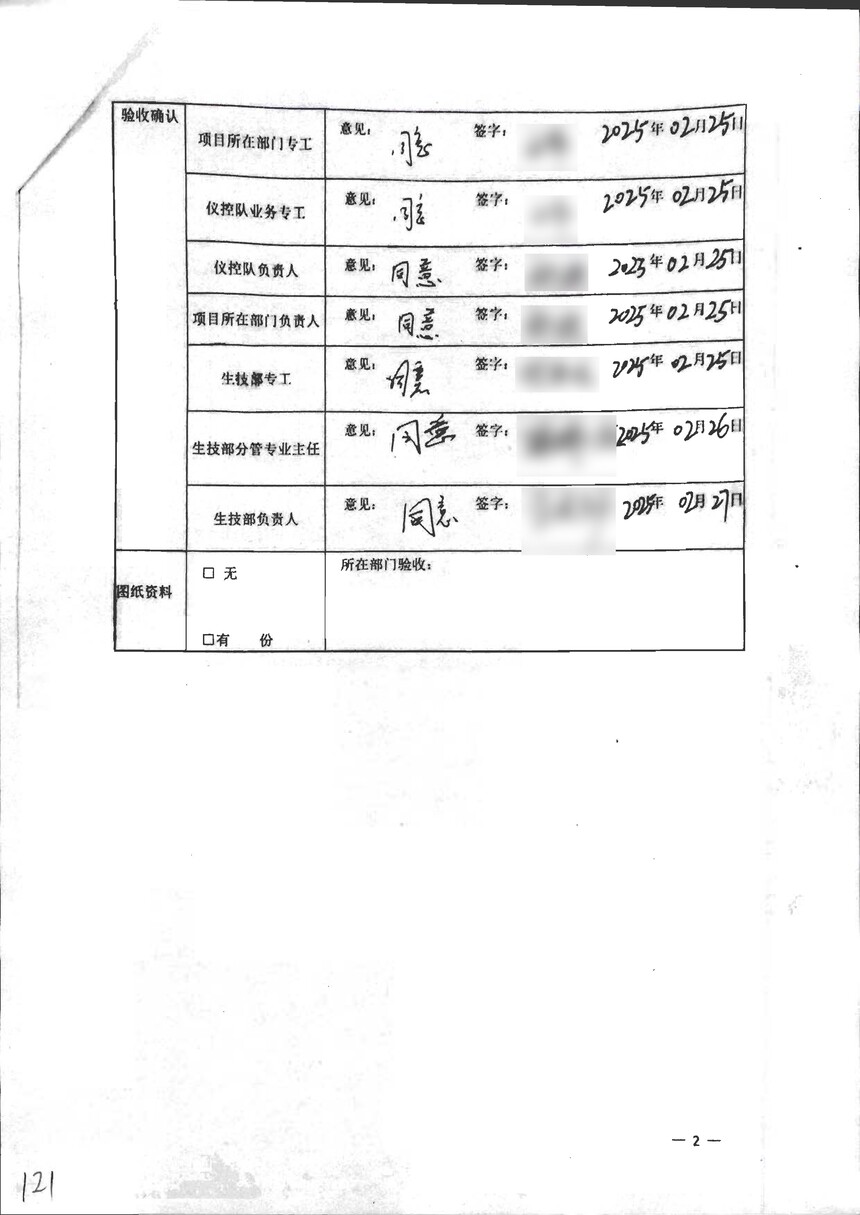 验收确认
项目所在部门专工 意见： 同意 签字： 2025年02月25日
仪控队业务专工 意见： 同意 签字： 2025年02月25日
仪控队负责人 意见： 同意 签字： 2023年02月25日
项目所在部门负责人 意见： 同意 签字： 2025年02月25日
生技部专工 意见： 同意 签字： 2025年02月25日
生技部分管专业主任 意见： 同意 签字： 2025年02月26日
生技部负责人 意见： 同意 签字： 2025年02月27日
图纸资料 □ 无 所在部门验收：
□有 份
— 2 —
121